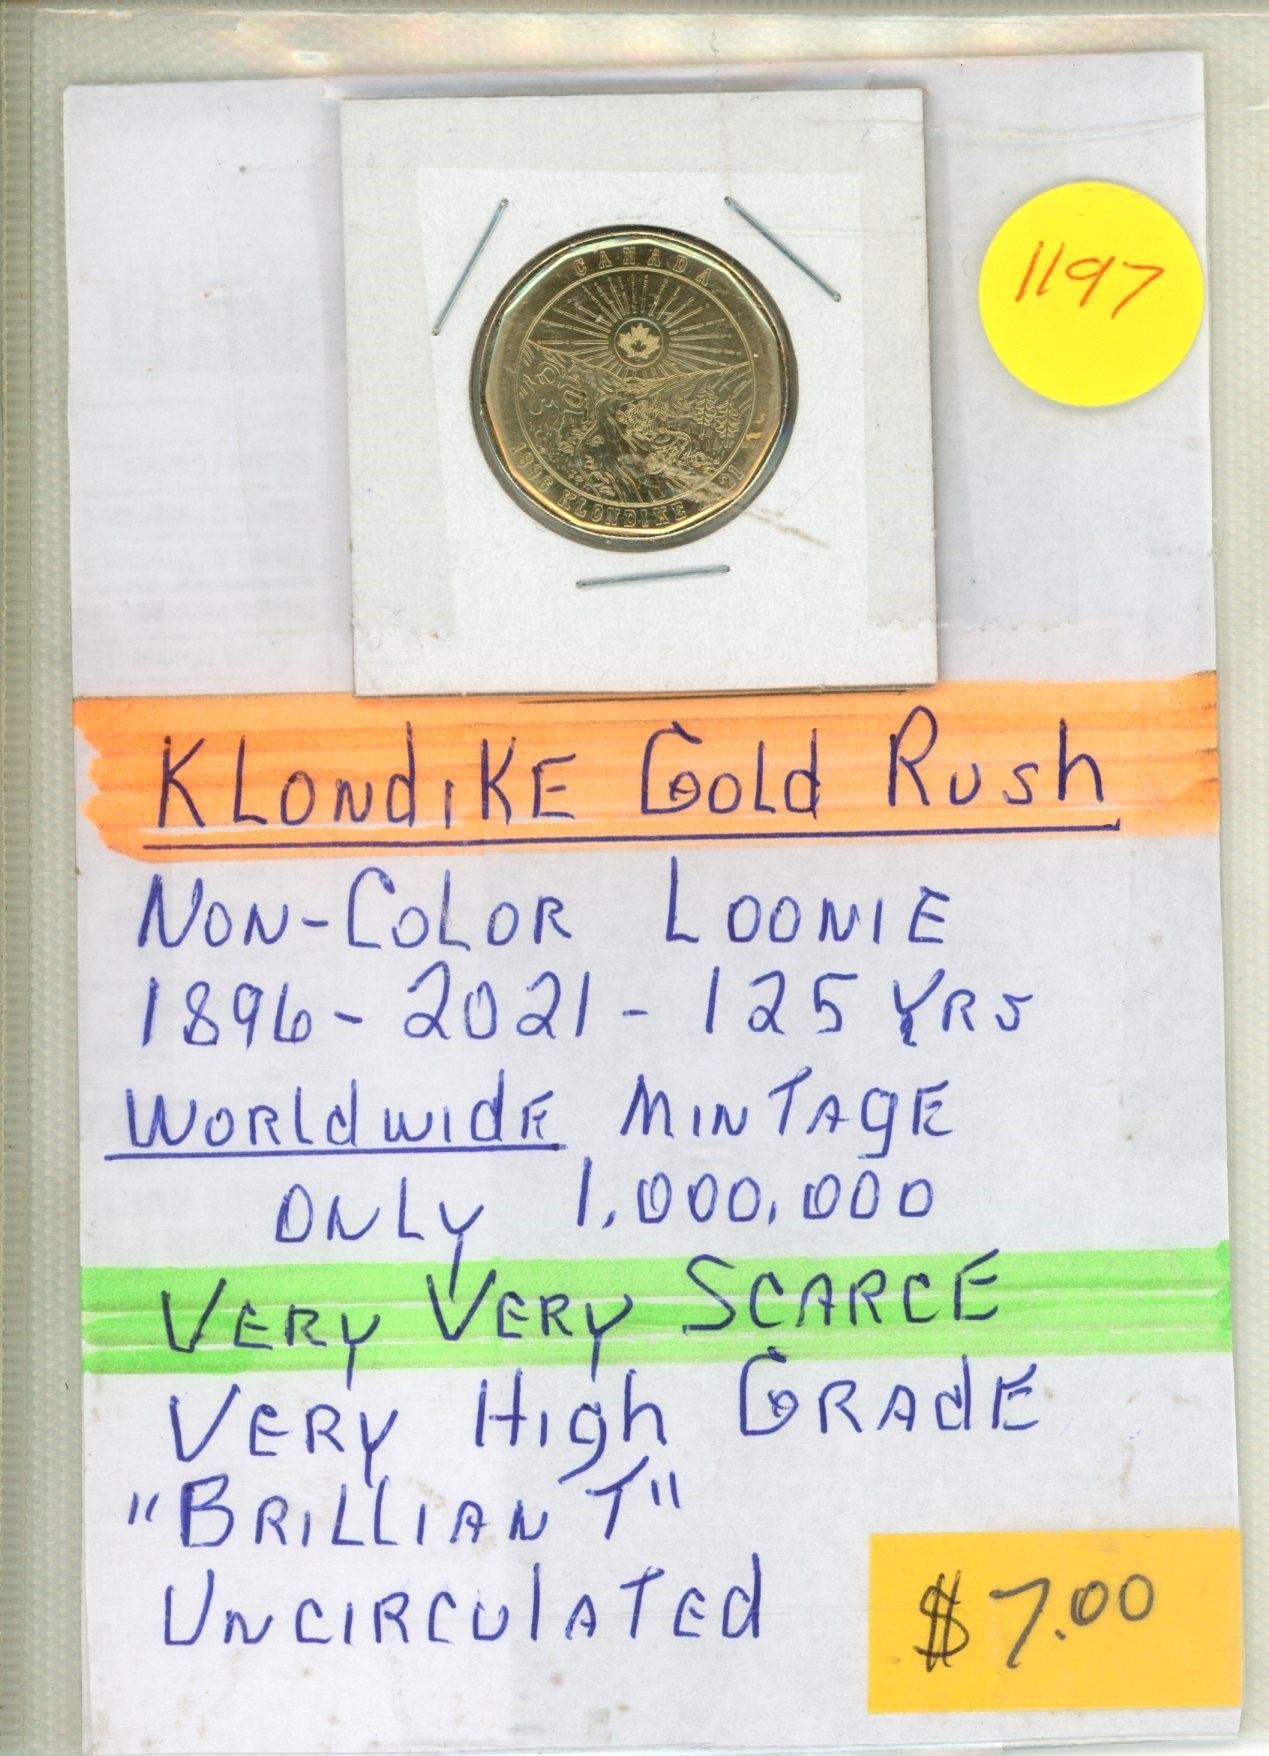 CANADA
1896 KLONDIKE 2021
1197
KLONDIKE GOLD RUSH
NON-COLOR LOONIE
1896-2021-125 YRS
WORLDWIDE MINTAGE
ONLY 1,000,000
VERY VERY SCARCE
VERY HIGH GRADE
"BRILLIANT"
UNCIRCULATED
$7.00